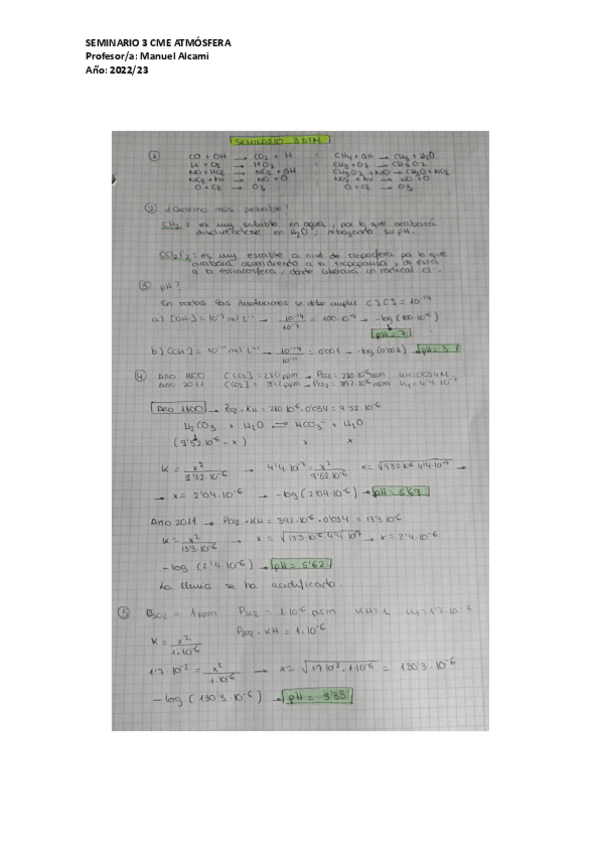 SEMINARIO 3 CME ATMÓSFERA
Profesor/a: Manuel Alcami
Año: 2022/23
SEMINARIO 3 ATM
① CO + OH → CO2 + H
H + O2 → HO2
NO + HO2 → NO2 + OH
NO2 + hν → NO + O
O + O2 → O3
CH4 + OH → CH3 + H2O
CH3 + O2 → CH3O2
CH3O2 + NO → CH3O + NO2
NO2 + hν → NO + O
O + O2 → O3
② ¿Destino más probable?
es muy soluble en agua, por lo que acabará
disolviéndose en H2O, rebajando su pH.
CCl2F2: es muy estable a nivel de troposfera por lo que
acabará ascendiendo a la tropopausa y de ésta
a la estratosfera, donde liberará un radical Cl·.
③ pH?
En todas las disoluciones se debe cumplir [ ][ ] = 10^-14
a) [OH-] = 10^-7 mol L^-1 → 10^-14/10^-7 = 100·10^-9 → -log(100·10^-9)
pH = 7
b) [OH-] = 10^-11 mol L^-1 → 10^-14/10^-11 = 0'001 → -log(0'001) → pH = 3
④ Año 1800 [CO2] = 280 ppm → PCO2 = 280·10^-6 atm KH = 0'034 M
Año 2011 [CO2] = 392 ppm → PCO2 = 392·10^-6 atm K1 = 4'4·10^-7
Año 1800 → PCO2 · KH = 280·10^-6 · 0'034 = 9'52·10^-6
H2CO3 + H2O ⇌ HCO3^- + H2O
(9'52·10^-6 - x) x x
K = x^2/9'52·10^-6 4'4·10^-7 = x^2/9'52·10^-6 x = √9'52·10^-6·4'4·10^-7 →
→ x = 2'04·10^-6 → -log(2'04·10^-6) → pH = 5'69
Año 2011 → PCO2 · KH = 392·10^-6 · 0'034 = 13'3·10^-6
K = x^2/13'3·10^-6 → x = √13'3·10^-6·4'4·10^-7 → x = 2'4·10^-6
-log(2'4·10^-6) → pH = 5'62
La lluvia se ha acidificado.
⑤ SO2 = 1 ppm PSO2 = 1·10^-6 atm KH = 1 K1 = 1'7·10^-2
PSO2 · KH = 1·10^-6
K = x^2/1·10^-6
1'7·10^-2 = x^2/1·10^-6 → x = √1'7·10^-2·1·10^-6 = 130'3·10^-6
-log(130'3·10^-6) → pH = 3'88